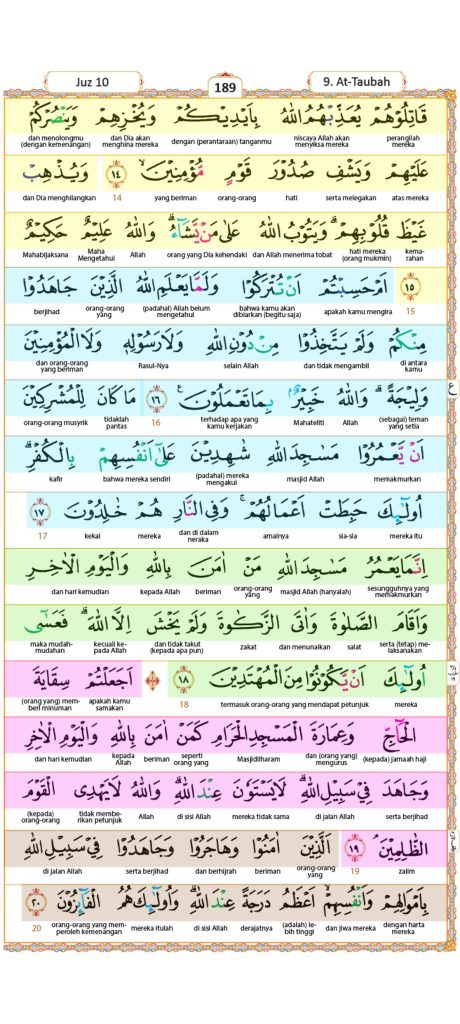 Juz 10
189
9. At-Taubah
قَاتِلُوْهُمْ يُعَذِّبْهُمُ اللّٰهُ بِاَيْدِيْكُمْ وَيُخْزِهِمْ وَيَنْصُرْكُمْ
perangilah mereka niscaya Allah akan menyiksa mereka dengan (perantaraan) tanganmu dan Dia akan menghina mereka dan menolongmu (dengan kemenangan)
عَلَيْهِمْ وَيَشْفِ صُدُوْرَ قَوْمٍ مُّؤْمِنِيْنَۙ ١٤ وَيُذْهِبْ
atas mereka serta melegakan hati orang-orang yang beriman 14 dan Dia menghilangkan
غَيْظَ قُلُوْبِهِمْۗ وَيَتُوْبُ اللّٰهُ عَلٰى مَنْ يَّشَاۤءُۗ وَاللّٰهُ عَلِيْمٌ حَكِيْمٌ
kema-rahan hati mereka (orang mukmin) dan Allah menerima tobat orang yang Dia kehendaki Allah Maha Mengetahui Mahabijaksana
١٥ اَمْ حَسِبْتُمْ اَنْ تُتْرَكُوْا وَلَمَّا يَعْلَمِ اللّٰهُ الَّذِيْنَ جَاهَدُوْا
15 apakah kamu mengira bahwa kamu akan dibiarkan (begitu saja) (padahal) Allah belum mengetahui orang-orang yang berjihad
مِنْكُمْ وَلَمْ يَتَّخِذُوْا مِنْ دُوْنِ اللّٰهِ وَلَا رَسُوْلِهٖ وَلَا الْمُؤْمِنِيْنَ
di antara kamu dan tidak mengambil selain Allah Rasul-Nya dan orang-orang yang beriman
وَلِيْجَةًۗ وَاللّٰهُ خَبِيْرٌۢ بِمَا تَعْمَلُوْنَࣖ ١٦ مَا كَانَ لِلْمُشْرِكِيْنَ
(sebagai) teman yang setia Allah Mahateliti terhadap apa yang kamu kerjakan 16 tidaklah pantas orang-orang musyrik
ع
اَنْ يَّعْمُرُوْا مَسٰجِدَ اللّٰهِ شٰهِدِيْنَ عَلٰٓى اَنْفُسِهِمْ بِالْكُفْرِۗ
memakmurkan masjid Allah (padahal) mereka mengakui bahwa mereka sendiri kafir
اُولٰۤىِٕكَ حَبِطَتْ اَعْمَالُهُمْۚ وَفِى النَّارِ هُمْ خٰلِدُوْنَ ١٧
mereka itu sia-sia amalnya dan di dalam neraka mereka kekal 17
اِنَّمَا يَعْمُرُ مَسٰجِدَ اللّٰهِ مَنْ اٰمَنَ بِاللّٰهِ وَالْيَوْمِ الْاٰخِرِ
sesungguhnya yang memakmurkan masjid Allah (hanyalah) orang-orang yang beriman kepada Allah dan hari kemudian
وَاَقَامَ الصَّلٰوةَ وَاٰتَى الزَّكٰوةَ وَلَمْ يَخْشَ اِلَّا اللّٰهَۗ فَعَسٰٓى
serta (tetap) me-laksanakan salat dan menunaikan zakat dan tidak takut (kepada apa pun) kecuali ke-pada Allah maka mudah-mudahan
اُولٰۤىِٕكَ اَنْ يَّكُوْنُوْا مِنَ الْمُهْتَدِيْنَ ١٨ اَجَعَلْتُمْ سِقَايَةَ
mereka termasuk orang-orang yang mendapat petunjuk 18 apakah kamu samakan (orang yang) mem-beri minuman
الْحَاۤجِّ وَعِمَارَةَ الْمَسْجِدِ الْحَرَامِ كَمَنْ اٰمَنَ بِاللّٰهِ وَالْيَوْمِ الْاٰخِرِ
(kepada) jamaah haji dan (orang yang) mengurus Masjidilharam seperti orang yang beriman kepada Allah dan hari kemudian
وَجَاهَدَ فِيْ سَبِيْلِ اللّٰهِۗ لَا يَسْتَوٗنَ عِنْدَ اللّٰهِۗ وَاللّٰهُ لَا يَهْدِى الْقَوْمَ
serta berjihad di jalan Allah mereka tidak sama di sisi Allah Allah tidak membe-rikan petunjuk (kepada) orang-orang
الظّٰلِمِيْنَۘ ١٩ اَلَّذِيْنَ اٰمَنُوْا وَهَاجَرُوْا وَجَاهَدُوْا فِيْ سَبِيْلِ اللّٰهِ
zalim 19 orang-orang yang beriman dan berhijrah serta berjihad di jalan Allah
بِاَمْوَالِهِمْ وَاَنْفُسِهِمْۙ اَعْظَمُ دَرَجَةً عِنْدَ اللّٰهِۗ وَاُولٰۤىِٕكَ هُمُ الْفَاۤىِٕزُوْنَ ٢٠
dengan harta mereka dan jiwa mereka (adalah) le-bih tinggi derajatnya di sisi Allah dan mereka itulah orang-orang yang mem-peroleh kemenangan 20